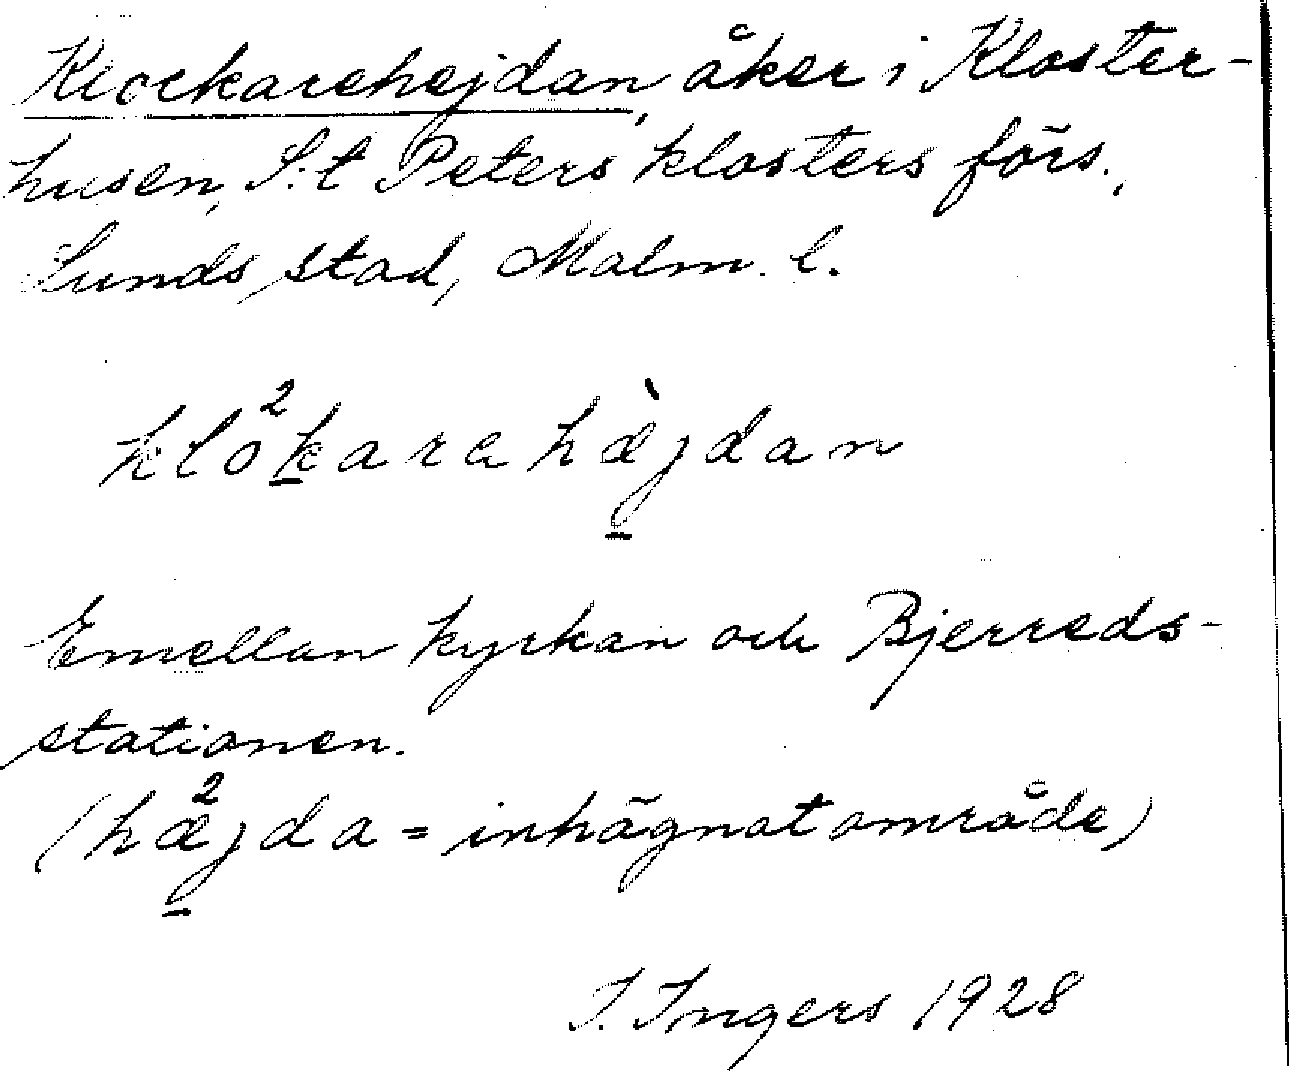 Klockarehejdan, åker i Kloster-
husen, S:t Peters klosters förs.,
Lunds stad, Malm. l.
klo²karehæ̀jdan
Emellan kyrkan och Bjerreds-
stationen.
(hæ²jda = inhägnat område)
I. Ingers 1928